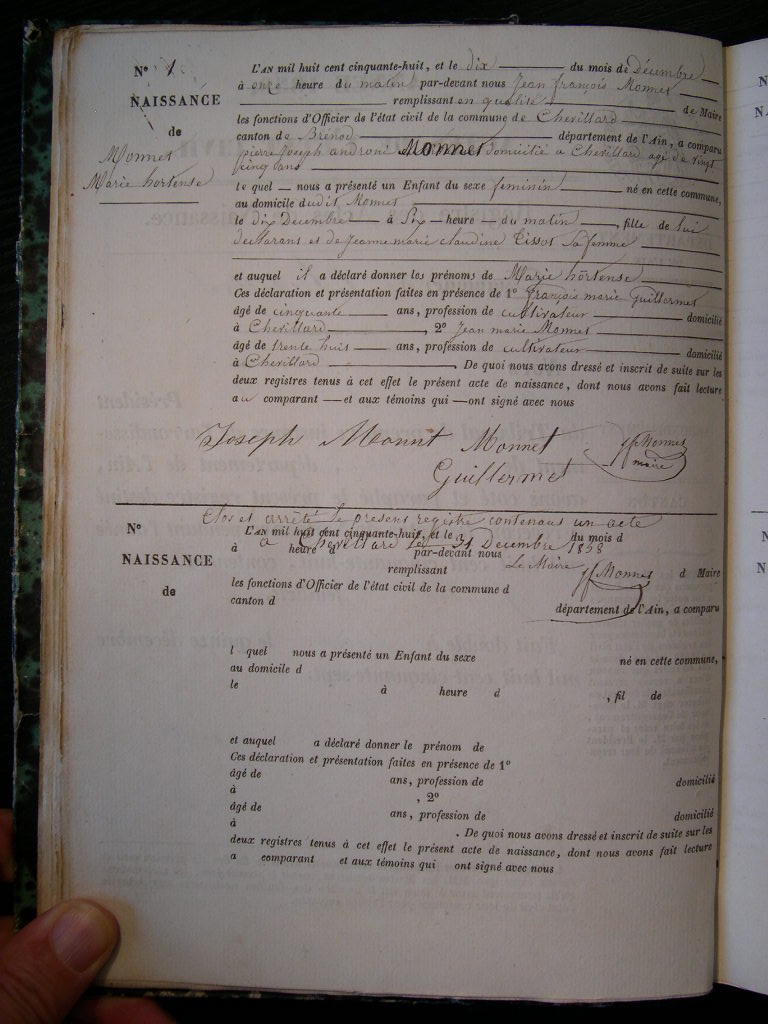 N° 1
NAISSANCE
de
Monnet
Marie hortense
L'AN mil huit cent cinquante-huit, et le dix du mois de Décembre
à onze heure du matin par-devant nous Jean françois Monnet
remplissant en qualité de Maire
les fonctions d'Officier de l'état civil de la commune de Chevillard
canton de Brénod département de l'Ain, a comparu
pierre Joseph androni Monnet domicilié a Chevillard agé de vingt
cinq ans
le quel nous a présenté un Enfant du sexe feminin né en cette commune,
au domicile dudit Monnet
le dix Décembre à Six heure du matin, fille de lui
declarans et de Jeanne marie claudine Tissot Sa femme
et auquel il a déclaré donner les prénoms de Marie hortense
Ces déclaration et présentation faites en présence de 1° françois marie Guillermet
âgé de cinquante ans, profession de cultivateur domicilié
à Chevillard, 2° Jean marie Monnet
âgé de trente huit ans, profession de cultivateur domicilié
à Chevillard. De quoi nous avons dressé et inscrit de suite sur les
deux registres tenus à cet effet le présent acte de naissance, dont nous avons fait lecture
au comparant et aux témoins qui ont signé avec nous
Joseph Monnt Monnet jf Monnet
Guillermet maire
Clos et arrêté le present registre contenant un acte
N°
NAISSANCE
de
L'AN mil huit cent cinquante-huit, et le du mois d
a Chevillard le 31 Décembre 1858
à heure d par-devant nous
remplissant Le Maire jf Monnet d Maire
les fonctions d'Officier de l'état civil de la commune d
canton d département de l'Ain, a comparu
l quel nous a présenté un Enfant du sexe né en cette commune,
au domicile d
le à heure d , fil de
et auquel a déclaré donner le prénom de
Ces déclaration et présentation faites en présence de 1°
âgé de ans, profession de domicilié
à , 2°
âgé de ans, profession de domicilié
à . De quoi nous avons dressé et inscrit de suite sur les
deux registres tenus à cet effet le présent acte de naissance, dont nous avons fait lecture
a comparant et aux témoins qui ont signé avec nous